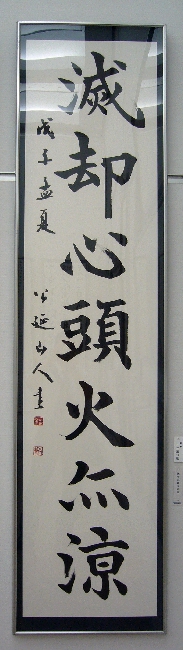 滅却心頭火亦涼
戊子孟夏
公延山人書